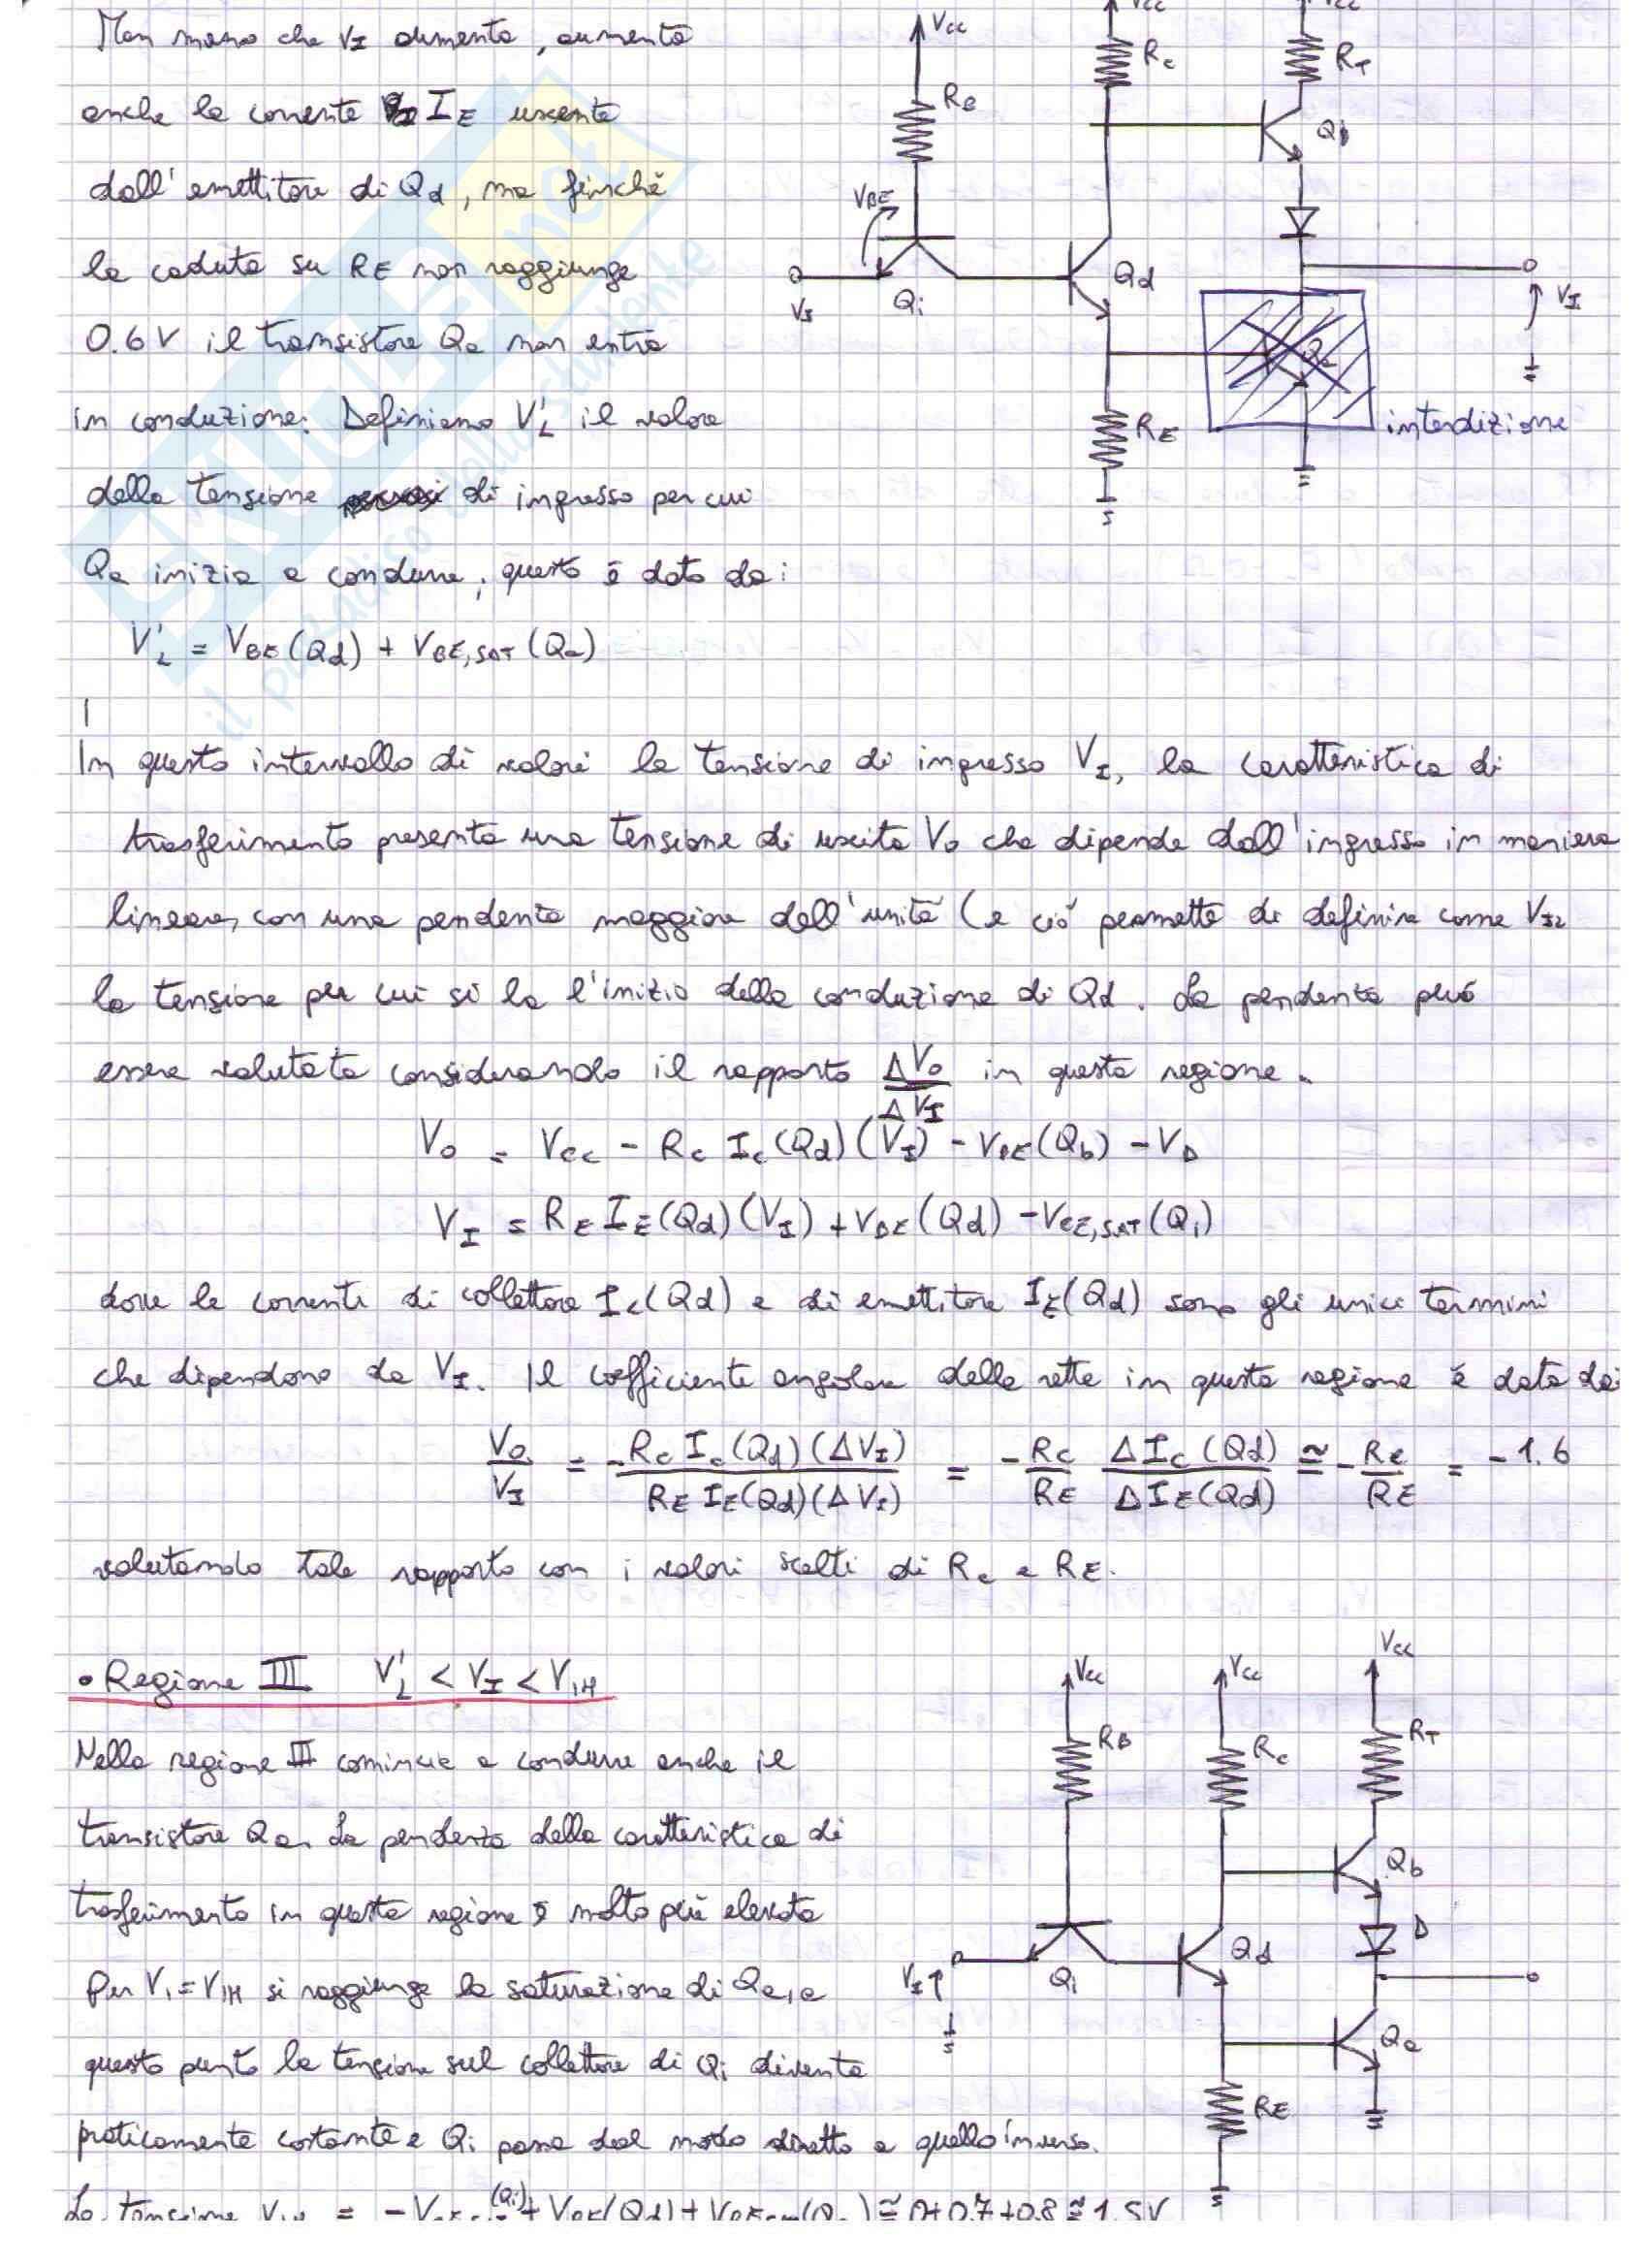 Man mano che VI aumenta, aumenta
anche la corrente IE uscente
dall'emettitore di Qd, ma finchè
la caduta su RE non raggiunge
0.6 V il transistore Qa non entra
in conduzione. Definiamo V'L il valore
della tensione di ingresso per cui
Qa inizia a condurre, questo è dato da:
V'L = VBE(Qd) + VBE,SAT(Qa)
Vcc
Vcc
Vcc
RB
Rc
RT
VBE
VI
Qi
Qd
Qb
Qa
VI
RE
interdizione
In questo intervallo di valori la tensione di ingresso VI, la caratteristica di
trasferimento presenta una tensione di uscita Vo che dipende dall'ingresso in maniera
lineare, con una pendenza maggiore dell'unità (e ciò permette di definire come VIL
la tensione per cui si ha l'inizio della conduzione di Qd. La pendenza può
essere valutata considerando il rapporto ΔVo/ΔVI in questa regione.
Vo = Vcc - Rc Ic(Qd)(VI) - VBE(Qb) - VD
VI = RE IE(Qd)(VI) + VBE(Qd) - VCE,SAT(Qi)
dove le correnti di collettore Ic(Qd) e di emettitore IE(Qd) sono gli unici termini
che dipendono da VI. Il coefficiente angolare della retta in questa regione è dato da:
Vo/VI = -Rc Ic(Qd)(ΔVI) / RE IE(Qd)(ΔVI) = -Rc/RE ΔIc(Qd)/ΔIE(Qd) ≅ -Rc/RE = -1.6
valutando tale rapporto con i valori scelti di Rc e RE.
• Regione III V'L < VI < VIH
Nella regione III comincia a condurre anche il
transistore Qa. La pendenza della caratteristica di
trasferimento in questa regione è molto più elevata
Per VI = VIH si raggiunge la saturazione di Qa, e a
questo punto la tensione sul collettore di Qi diventa
praticamente costante e Qi passa dal modo diretto a quello inverso.
La tensione VIH = -VCE (Qi) + VBE(Qd) + VBE,SAT(Qa) ≅ 0+0.7+0.8 ≅ 1.5V
Vcc
Vcc
Vcc
RB
Rc
RT
Qb
D
Qd
Qi
VI
Qa
RE
SKUOLA.net
il paradiso dello studente